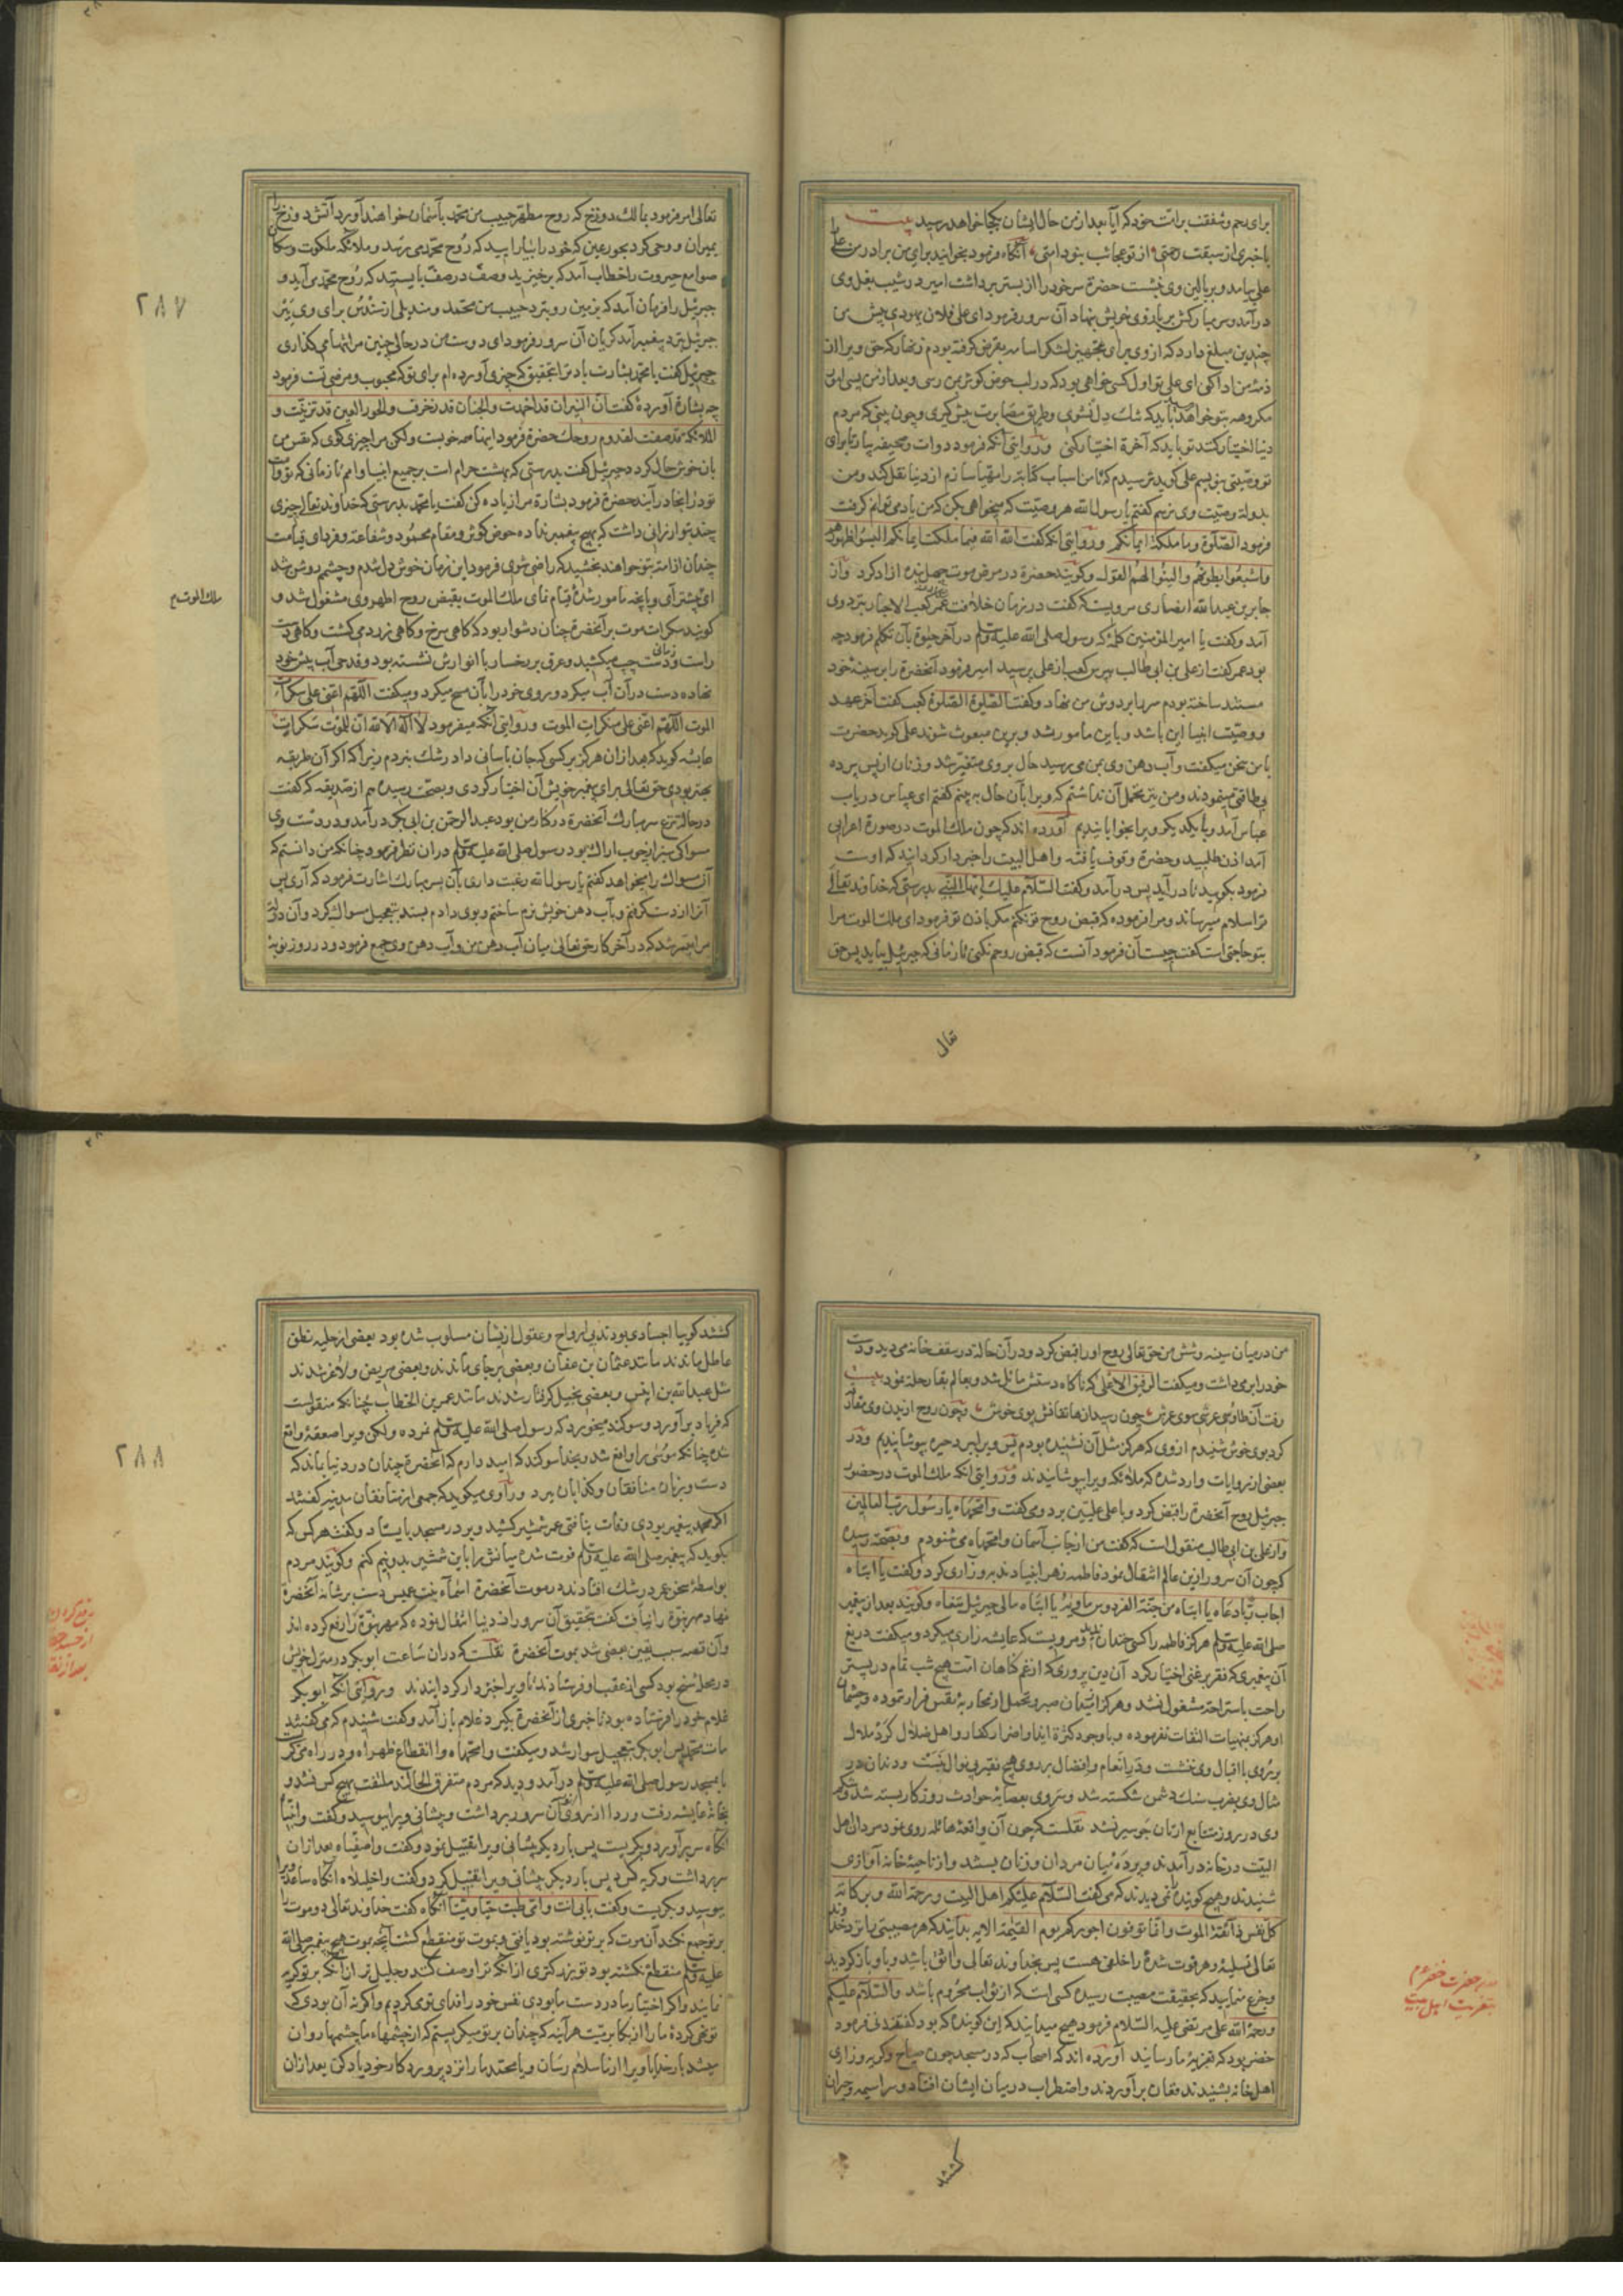 برای رحم و شفقت بر امت خود که آیا بعد از من حال ایشان بکجا خواهد رسید بیت
با خبری از سبقت رحمتی از تو عجائب بنود امتی آنگاه فرمود بخوانید برای من برادر من علی
علی بیامد و بر بالین وی بنشست حضرة سر خود را از بستر برداشت امیر در شیب بغل وی
درآمد و سر مبارکش بر بازوی خویش بنهاد آن سرور فرمود ای علی فلان یهودی پیش من
چندین مبلغ دارد که از وی برای تجهیز لشکر اسامه بقرض گرفته بودم زنهار که حق ویرا از
ذمه من ادا کنی ای علی تو اول کسی خواهی بود که در لب حوض کوثر بمن رسی و بعد از من بسی امور
مکروهه بتو خواهد باید که تنگ دل نشوی و طریق مصابرت پیش گیری و چون بینی که مردم
دنیا اختیار کنند تو باید که آخرة اختیار کنی و روایتی آنکه فرمود دوات و صحیفه بیار تا برای
تو وصیتی بنویسم علی کوید ترسیدم که تا من اسباب کتابة را مهیا سازم از دنیا نقل کند و من
بدولة وصیت وی نرسم کفتم یا رسول الله هر وصیت که میخواهی بکن که من یاد می توانم کرفت
فرمود الصلوة و ما ملکت ایمانکم و روایتی آنکه کفت الله الله فیما ملکت ایمانکم البسوا ظهورهم
واشبعوا بطونهم والینوا لهم القول و کویند حضرة در مرض موت چهل بنده آزاد کرد و از
جابر بن عبدالله انصاری مرویست که کفت در زمان خلافت عمر کعب الاحبار نزد وی
آمد و کفت یا امیر المؤمنین کلمۀ که رسول صلی الله علیه وسلم در آخر حیوة بآن تکلم فرمود چه
بود عمر کفت از علی بن ابی طالب بپرس کعب از علی پرسید امیر فرمود آنحضرة را بر سینۀ خود
مستند ساخته بودم سر را بر دوش من نهاد و کفت الصلوة الصلوة کعب کفت آخر عهد
و وصیت انبیا این باشد و باین مامور شد و برین مبعوث شوند علی کوید حضرت
با من سخن میکفت و آب دهن وی بمن می رسید حال بر وی متغیر شد و زنان از پس پرده
بی طاقتی مینمودند و من نیز تحمل آن نداشتم که ویرا بآن حال به بینم کفتم ای عباس دریاب
عباس آمد و با یکدیکر ویرا بخوابانیدیم آورده اند که چون ملک الموت در صورة اعرابی
آمد اذن طلبید و حضرة وقوف یافته و اهل البیت را خبردار کردانید که اوست
فرمود بکویید تا درآید پس درآمد و کفت السلام علیک ایها النبی بدرستی که خداوند تعالی
ترا سلام میرساند و مرا فرموده که قبض روح تو نکنم مکر باذن تو فرمود ای ملک الموت مرا
بتو حاجتی است کفت چیست آن فرمود آنست که قبض روحم نکنی تا زمانی که جبرئیل بیاید پس حق
تعالی
تعالی امر فرمود بمالک دوزخ که روح مطهر حبیب من محمد بآسمان خواهند آورد آتش دوزخ را
بمیران و وحی کرد بحور عین که خود را بیارایید که روح محمد می رسد و ملائکه ملکوت و سکان
صوامع جبروت را خطاب آمد که برخیزید و صف در صف بایستید که روح محمد می آید و
جبرئیل را فرمان آمد که بزمین رو نزد حبیب من محمد و مندیلی از سندس برای وی ببر
جبرئیل نزد پیغمبر آمد کریان آن سرور فرمود ای دوست من در حال چنین مرا تنها می کذاری
جبرئیل کفت یا محمد بشارت باد ترا بتحقیق که چیزی آورده ام برای تو که محبوب و مرضی تست فرمود
چه بشارة آوردۀ کفت ان النیران قد اخمدت والجنان قد تزخرفت والحور العین قد تزینت و
الملائکة قد صفت لقدوم روحک حضرة فرمود اینها همه خوبست ولکن مرا چیزی کوی که نفس من
بآن خوش حال کردد جبرئیل کفت بدرستی که بهشت حرام است بر جمیع انبیا و امم تا زمانی که تو و امت
تو در آنجا درآیند حضرة فرمود بشارة مرا زیاده کن کفت یا محمد بدرستی که خداوند تعالی چیزی
چند بتو ارزانی داشت که بهیچ پیغمبر نداده حوض کوثر و مقام محمود و شفاعة و فردای قیامت
چندان از امت بتو خواهند بخشید که راضی شوی فرمود این زمان خوش دل شدم و چشمم روشن شد
ای پیشتر آی و بآنچه مامور شدۀ قیام نمای ملک الموت بقبض روح اطهر وی مشغول شد و
کویند سکرات موت بر آنحضرة چنان دشوار بود که کاهی سرخ و کاهی زرد می کشت و کاهی دست
راست و زمانی دست چپ میکشید و عرق بر رخسار با انوارش نشسته بود و قدحی آب پیش خود
نهاده دست در آن آب میکرد و بروی خود را بآن مسح میکرد و میکفت اللهم اعنی علی سکرات
الموت اللهم اعنی علی منکرات الموت و روایتی آنکه میفرمود لا اله الا الله ان للموت سکرات
عایشه کوید که بعد از آن هرکز بر کسی که جان بآسانی داد رشک نبردم زیرا که اکر آن طریقه
بهتر بودی حق تعالی برای پیغمبر خویش آن اختیار کردی و بصحت رسیده هم از صدیقه که کفت
در حالت نزع سر مبارک آنحضرة در کنار من بود عبد الرحمن بن ابی بکر درآمد و در دست وی
مسواکی سبز از چوب اراک بود رسول صلی الله علیه وسلم در آن نظر فرمود چنانکه من دانستم که
آن مسواک را میخواهد کفتم یا رسول الله رغبت داری بآن بسر مبارک اشارت فرمود که آری پس
آنرا از دست کرفتم و بآب دهن خویش نرم ساختم و بوی دادم بستد بتعجیل مسواک کرد و آن دولة
مرا میسر شد که در آخر کار حق تعالی میان آب دهن من و آب دهن وی جمع فرمود و در روز نوبة
٢٨٧
ملک الموت
من در میان سینه و شش من حق تعالی روح او را قبض کرد و در آن حالة در سقف خانه می دید و دست
خود را بر می داشت و میکفت الرفیق الاعلی که ناکاه دستش مائل شد و بعالم بقا رحلة نمود بیت
رفت آن طاوس عرشی سوی عرش چون رسید از هاتفانش بوی خوش و چون روح از بدن وی مفارقة
کرد بوی خوش شنیدم از وی که هرکز مثل آن نشنیده بودم پس ویرا ببرد حبره بپوشانیدیم و در
بعضی از روایات وارد شده که ملائکه ویرا بپوشانیدند و روایتی آنکه ملک الموت در حضور
جبرئیل روح آنحضرة را قبض کرد و با علی علیین برد و می کفت وامحمداه یا رسول رب العالمین
و از علی بن ابی طالب منقول است که کفت من از جانب آسمان وامحمداه می شنودم و بصحة رسیده
که چون آن سرور ازین عالم انتقال نمود فاطمه زهرا بنیاد ندبه و زاری کرد و کفت یا ابتاه
اجاب ربا دعاه یا ابتاه من جنة الفردوس ماویه یا ابتاه الی جبرئیل ننعاه و کویند بعد از پیغمبر
صلی الله علیه وسلم هرکز فاطمه را کسی خندان ندید و مرویست که عایشه زاری میکرد و میکفت دریغ
آن پیغمبری که فقر بر غنی اختیار کرد آن دین پروری که از غم کناهان امت هیچ شب تمام در بستر
راحت باستراحة مشغول نشد و هرکز از میدان صبر و تحمل از محاربۀ نفس فرار ننموده و چشمان
او هرکز بمنهیات التفات نفرموده و با وجود کثرة ایذا و اضرار کفار و اهل ضلال کرد ملال
بر روی با اقبال وی ننشست و در انعام و افضال بر روی هیچ فقیر بی نوال نبست و دندان در
مثال وی بضرب سنک دشمن شکسته شد و سر وی بعصابه حوادث روزکار بسته شد و شکم
وی در دو روز متتابع از نان جو سیر نشد نقلست که چون آن واقعۀ هائله روی نمود مردان اهل
البیت در خانه درآمدند و پرده میان مردان و زنان بستند و از ناحیۀ خانه آوازی
شنیدند و هیچ کوینده نمی دیدند که می کفت السلام علیکم اهل البیت ورحمة الله وبرکاته
کل نفس ذائقة الموت وانما توفون اجورکم یوم القیمة الایه بدانید که هر مصیبتی را نزد خداوند
تعالی تسلیۀ و هر فوت شدۀ را خلفی هست پس بخداوند تعالی واثق باشید و باو بازکردید
و جزع منمایید که بحقیقت مصیبت رسیده کسی است که از ثواب محروم باشد والسلام علیکم
ورحمة الله علی مرتضی علیه السلام فرمود هیچ میدانید که این کوینده که بود کفتند نی فرمود
خضر بود که تعزیۀ ما رسانید آورده اند که اصحاب که در مسجد چون صیاح و کریه و زاری
اهل خانه بشنیدند فغان برآوردند و اضطراب در میان ایشان افتاد و سراسیمه و حیران
کشتند
حضرت خضر
بتعزیت اهل بیت
کشتند کوییا اجسادی بودند بی ارواح و عقول ازیشان مسلوب شده بود بعضی از حلیه نطق
عاطل ماندند مانند عثمان بن عفان و بعضی بر جای ماندند و بعضی مریض و لاغر شدند
مثل عبدالله بن انیس و بعضی بتخییل کرفتار شدند مانند عمر بن الخطاب چنانکه منقولست
که فریاد برآورد و سوکند میخورد که رسول صلی الله علیه وسلم نمرده ولکن ویرا صعقۀ واقع
شده چنانکه موسی را واقع شد و بخدا سوکند که امید دارم که آنحضرة چندان در دنیا بماند که
دست و زبان منافقان و کذابان ببرد و راوی میکوید که جمعی از منافقان مدینه کفتند
اکر محمد پیغمبر بودی وفات نیافتی عمر شمشیر کشید و بر در مسجد بایستاد و کفت هرکس که
بکوید که پیغمبر صلی الله علیه وسلم فوت شده میانش را باین شمشیر بدونیم کنم و کویند مردم
بواسطۀ سخن عمر در شک افتادند در موت آنحضرة اسماء بنت عمیس دست بر شانه آنحضرة
نهاد مهر نبوة را نیافت کفت بتحقیق آن سرور از دنیا انتقال نموده که مهر نبوة را رفع کرده اند
و آن قصه سبب یقین بعضی شد بموت آنحضرة نقلست که در آن ساعت ابوبکر در منزل خویش
در محلۀ سنح بود کسی از عقب او فرستادند تا ویرا خبردار کردانیدند و روایتی آنکه ابوبکر
غلام خود را فرستاده بود تا خبری از آنحضرة بکیرد غلام باز آمد و کفت شنیدم که می کفتند
مات محمد پس ابوبکر بتعجیل سوار شد و میکفت وامحمداه وانقطاع ظهراه و در راه می کریست
تا بمسجد رسول صلی الله علیه وسلم درآمد و دید که مردم متفرق الحال اند ملتفت بهیچ کس نشد و
بخانۀ عایشه رفت و ردا از روی آن سرور برداشت و پیشانی ویرا ببوسید و کفت وانبیاه
آنکاه سر برآورد و بکریست پس بار دیکر پیشانی ویرا تقبیل نمود و کفت واصفیاه بعد از آن
سر برداشت و کریه کرد پس بار دیکر پیشانی ویرا تقبیل کرد و کفت واخلیلاه آنکاه ساعد ویرا
ببوسید و بکریست و کفت بابی انت وامی طبت حیا ومیتا آنکاه کفت خداوند تعالی دو موت را
بر تو جمع نکند آن موت که بر تو نوشته بود یافتی و بموت تو منقطع کشت آنچه بموت هیچ پیغمبر صلی الله
علیه وسلم منقطع نکشته بود تو بزرکتری از آنکه ترا وصف کنند و جلیل تر از آنکه بر تو کریه
نمایند و اکر اختیار ما در دست ما بودی نفس خود را فدای تو می کردیم و اکر نه آن بودی که
تو نهی کردۀ ما را از بکا بر میت هرآینه که چندان بر تو میکریستیم که از چشمهاء ما چشمها روان
میشد بار خدایا ویرا از ما سلام رسان و یا محمد ما را نزد پروردکار خود یاد کن بعد از آن
٢٨٨